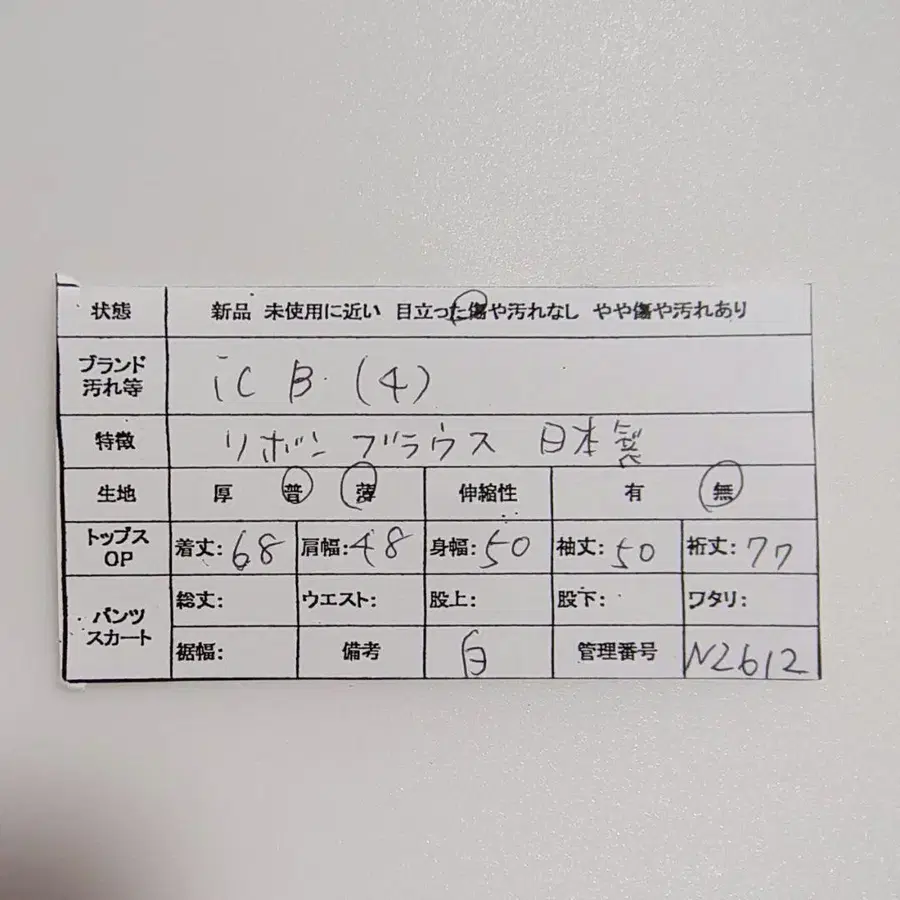 状態 新品 未使用に近い 目立った傷や汚れなし やや傷や汚れあり
ブランド 汚れ等 iCB (4)
特徴 リボン ブラウス 日本製
生地 厚 普 薄 伸縮性 有 無
トップス OP 着丈:68 肩幅:48 身幅:50 袖丈:50 裄丈:77
パンツ スカート 総丈: ウエスト: 股上: 股下: ワタリ:
裾幅: 備考 白 管理番号 N2612